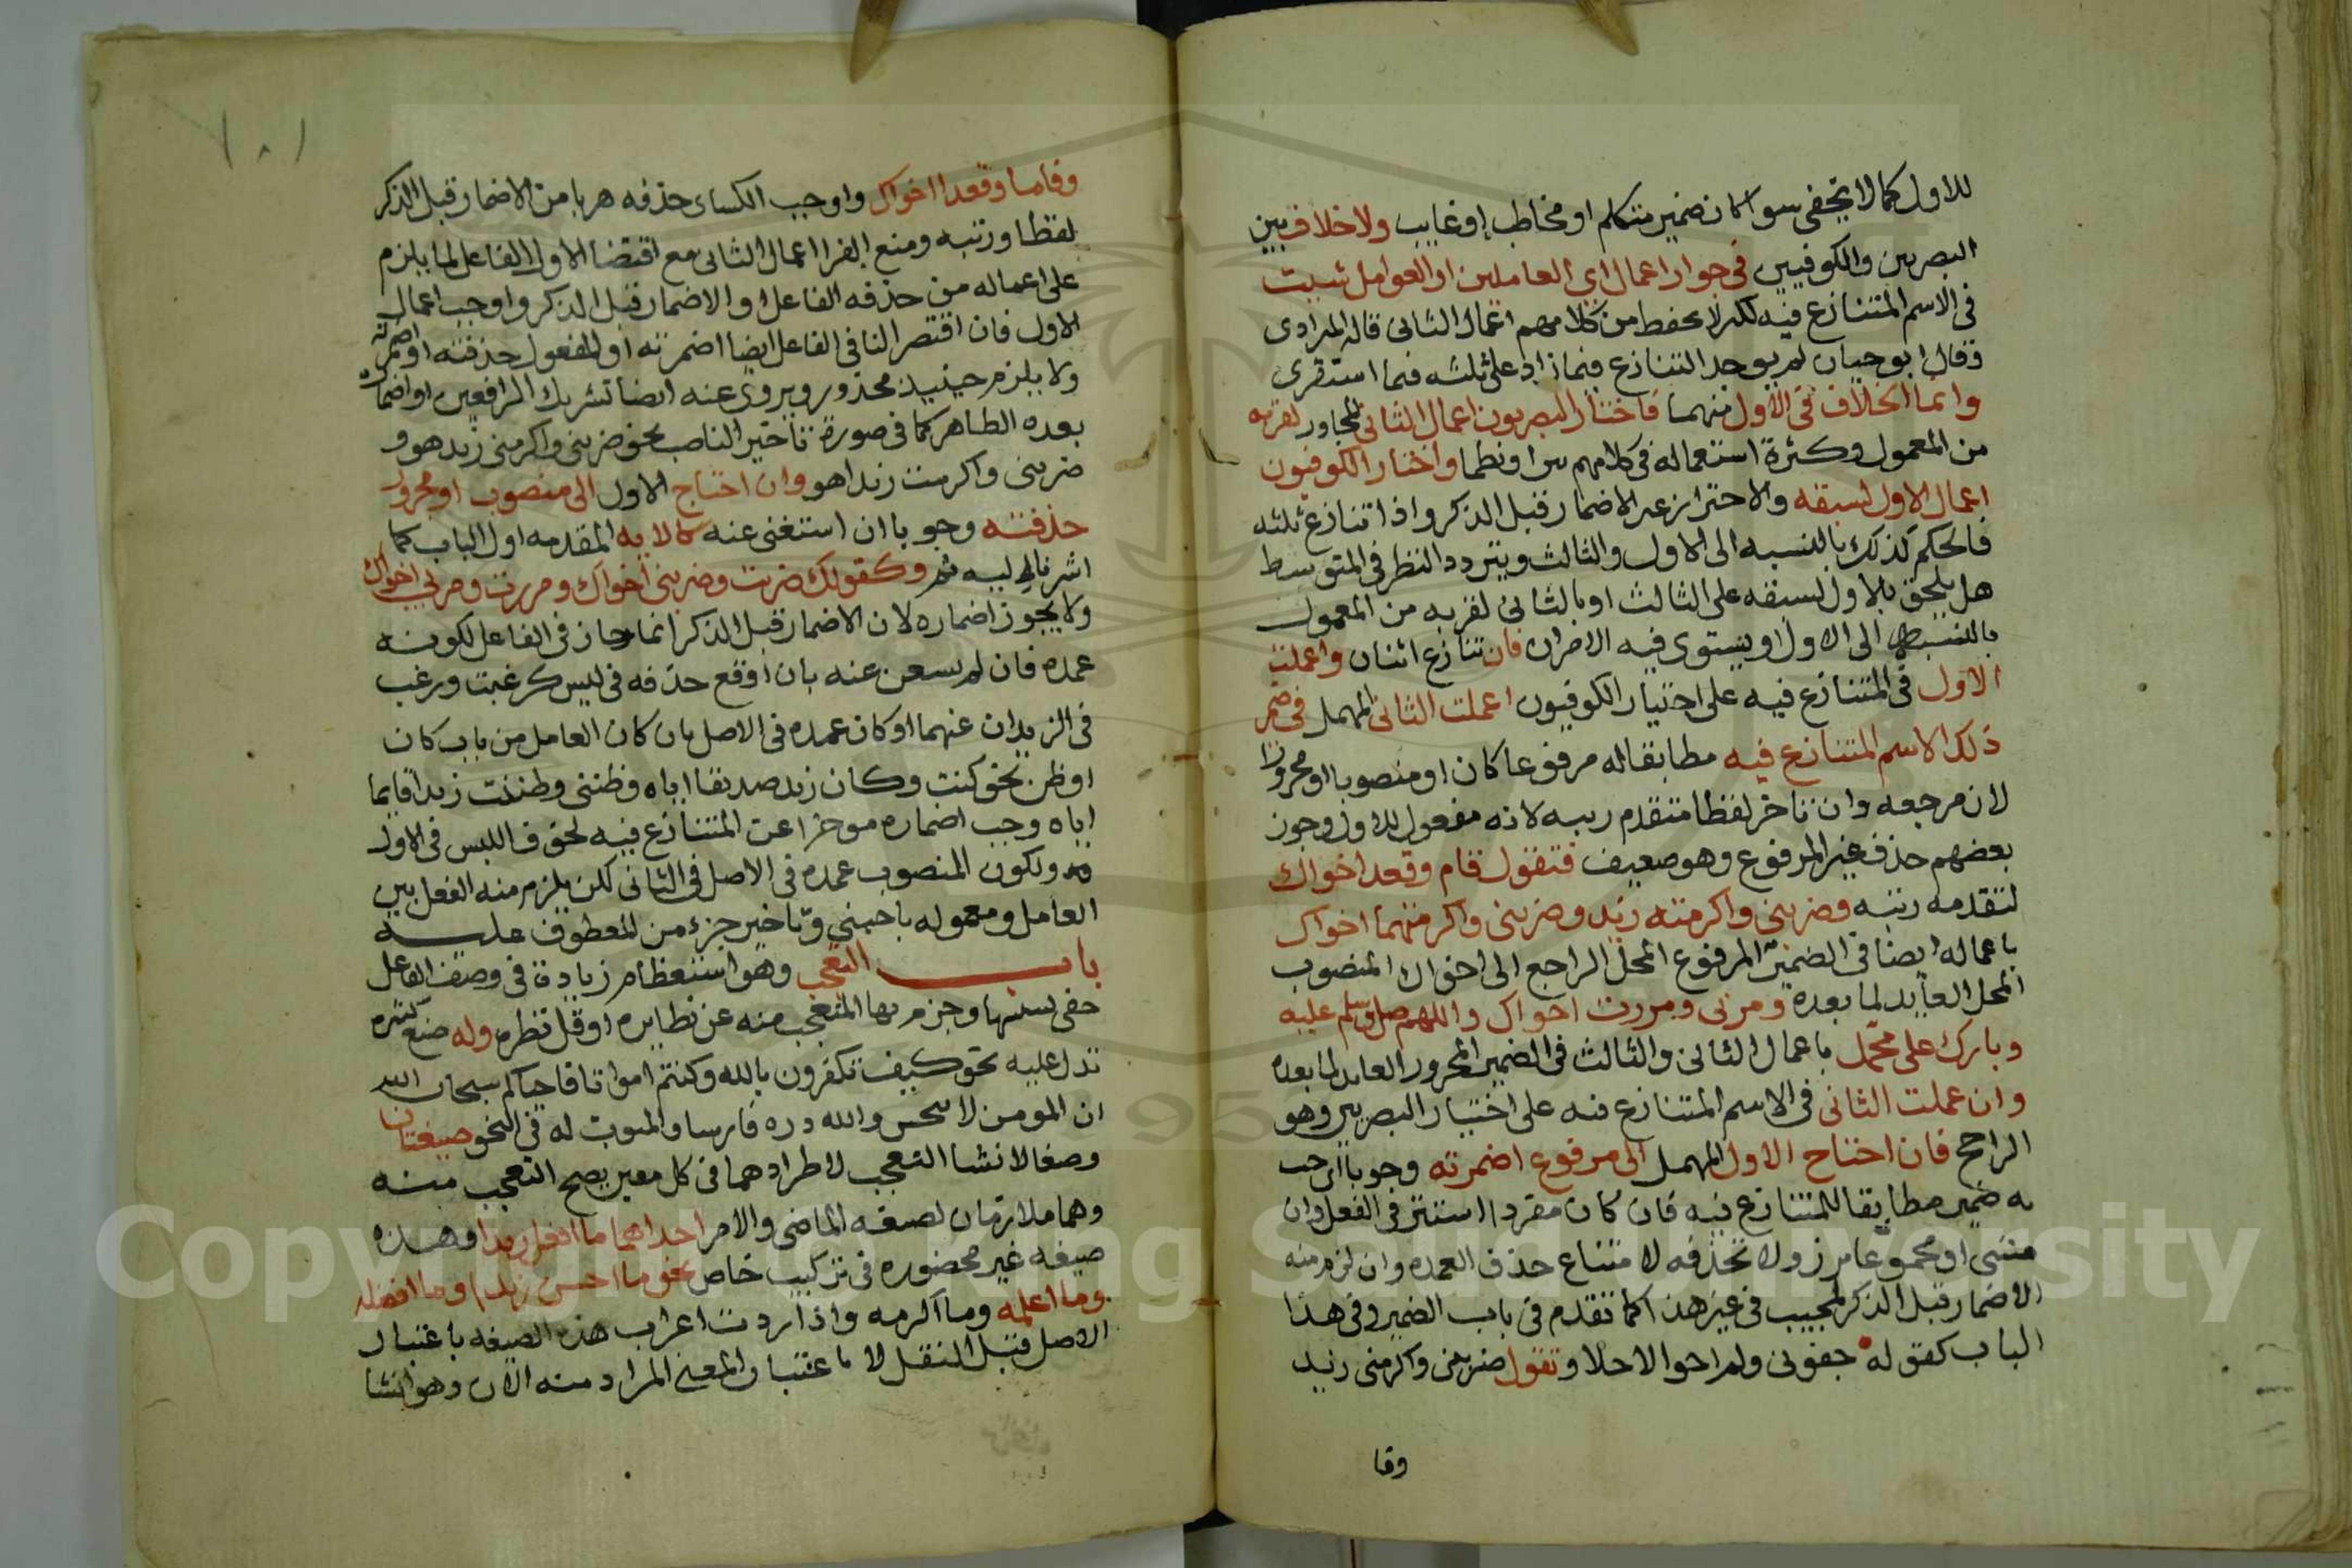 للاول كما لا يخفى سوا كان ضمير متكلم او مخاطب او غايب ولا خلاف بين
البصريين والكوفيين في جواز اعمال اي العاملين او العوامل شيت
في الاسم المتنازع فيه لكن لا يحفظ من كلامهم اعمال الثاني قاله المرادي
وقال ابو حيان لم يوجد التنازع فيما زاد على ثلثه فيما استقرى
وانما الخلاف في الاول منهما فاختار البصريون اعمال الثاني المجاور لقربه
من المعمول وكثرة استعماله في كلامهم نثرا ونظما واختار الكوفيون
اعمال الاول لسبقه والاحتراز عن الاضمار قبل الذكر واذا تنازع ثلثه
فالحكم كذلك بالنسبه الى الاول والثالث ويتردد النظر في المتوسط
هل يلحق بالاول لسبقه على الثالث او بالثاني لقربه من المعمول
بالنسبه الى الاول او يستوى فيه الامران فان تنازع اثنان واعملت
الاول في المتنازع فيه على اختيار الكوفيون اعملت الثاني المهمل في ضمير
ذلك الاسم المتنازع فيه مطابقا له مرفوعا كان او منصوبا او مجرورا
لان مرجعه وان تاخر لفظا متقدم رتبه لانه معمول للاول وجوز
بعضهم حذف غير المرفوع وهو ضعيف فتقول قام وقعدا خواك
لتقدمه رتبه وضربنى واكرمته زيد وضربنى واكرمتهما اخواك
باعماله ايضا في الضمير المرفوع المحل الراجع الى اخواك المنصوب
المحل العايد لما بعده ومر بى ومررت اخواك واللهم صل وسلم عليه
وبارك على محمد باعمال الثاني والثالث في الضمير المجرور العايد لما بعده
وان عملت الثاني في الاسم المتنازع فيه على اختيار البصريين وهو
الراجح فان احتاج الاول المهمل الى مرفوع اضمرته وجوبا اي جب
به ضمير مطابقا للمتنازع فيه فان كان مفردا استتر في الفعل وان
مثنى او مجموعا برز ولا تحذفه لامتناع حذف العمده وان لزم منه
الاضمار قبل الذكر لمجيه في غير هذا كما تقدم في باب الضمير وفي هذا
الباب كقوله جفوني ولم اجف الاخلا وتقول ضربنى واكرمنى زيد
وقا
١٠١
وقاما وقعدا اخواك واوجب الكساى حذفه هربا من الاضمار قبل الذكر
لفظا ورتبه ومنع الفرا اعمال الثاني مع اقتضا الاول الفاعل لما يلزم
على اعماله من حذفه الفاعل او الاضمار قبل الذكر واوجب اعمال
الاول فان اقتضر الثاني الفاعل ايضا اضمرته او المفعول حذفته او اضمرته
ولا يلزم حينيذ محذور ويروى عنه ايضا تشريك الرافعين او اضماره
بعده الظاهر كما في صورة تاخير الناصب نحو ضربنى واكرمنى زيد هو و
ضربنى واكرمت زيدا هو وان احتاج الاول الى منصوب او مجرور
حذفته وجوبا ان استغنى عنه كالايه المقدمه اول الباب كما
اشرنا اليه ثم وكقولك ضربت وضربنى اخواك ومررت ومر بى اخواك
ولا يجوز اضماره لان الاضمار قبل الذكر انما جاز في الفاعل لكونه
عمده فان لم يستغن عنه بان اوقع حذفه في لبس كرغبت ورغب
في الزيدان عنهما او كان عمده في الاصل بان كان العامل من باب كان
او ظن نحو كنت وكان زيد صديقا اياه وظننى وظننت زيدا قايما
اياه وجب اضماره موخرا عن المتنازع فيه لخوف اللبس في الاول
ولكون المنصوب عمده في الاصل في الثاني لكن يلزم منه الفصل بين
العامل ومعموله باجنبى وتاخير جزء من المعطوف عليه
باب التعجب وهو استعظام زيادة في وصف الفاعل
خفى سببها وخرج بها المتعجب منه عن نظايره او قل نظيره وله صيغ كثيره
تدل عليه نحو كيف تكفرون بالله وكنتم امواتا فاحياكم سبحان الله
ان المومن لا ينجس ولله دره فارسا والمبوب له في النحو صيغتان
وضعا لانشا التعجب لاطرادهما في كل معنى يصح التعجب منه
وهما ملازمان لصيغه الماضى والامر احداهما ما افعل زيدا وهذه
صيغه غير محصوره في تركيب خاص نحو ما احسن زيدا وما افضله
وما اعلمه وما اكرمه واذا اردت اعراب هذه الصيغه باعتبار
الاصل قبل النقل لا باعتبار المعنى المراد منه الان وهو انشا